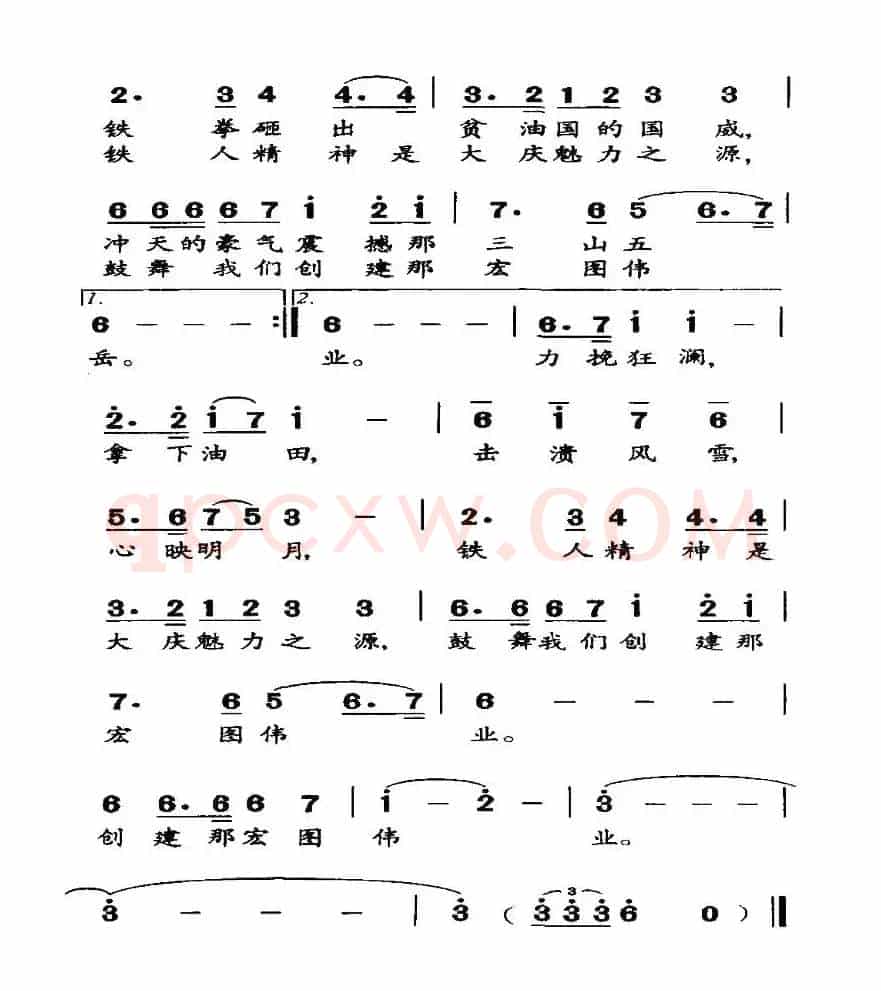 2. 3 4 4. 4 | 3. 2 1 2 3 3 |
铁 拳砸 出 贫 油国的国 威,
铁 人精 神是 大 庆魅力之 源,
6 6 6 6 7 i 2 i | 7. 6 5 6. 7 |
冲天的豪气震 撼那 三 山五
鼓舞 我们创 建那 宏 图伟
1. 2.
6 － － － :‖ 6 － － － | 6. 7 i i － |
岳。 业。 力挽狂 澜,
2. 2 i 7 i － | 6 i 7 6 |
拿 下油 田, 击 溃 风 雪,
5. 6 7 5 3 － | 2. 3 4 4. 4 |
心 映明 月, 铁 人精 神是
qpcxw.COM
3. 2 1 2 3 3 | 6. 6 6 7 i 2 i |
大 庆魅力之 源, 鼓 舞我们创 建那
7. 6 5 6. 7 | 6 － － － |
宏 图伟 业。
6 6. 6 6 7 | i － 2 － | 3 － － － |
创 建 那宏 图 伟 业。
3
3 － － － | 3 ( 3 3 3 6 0 ) ‖